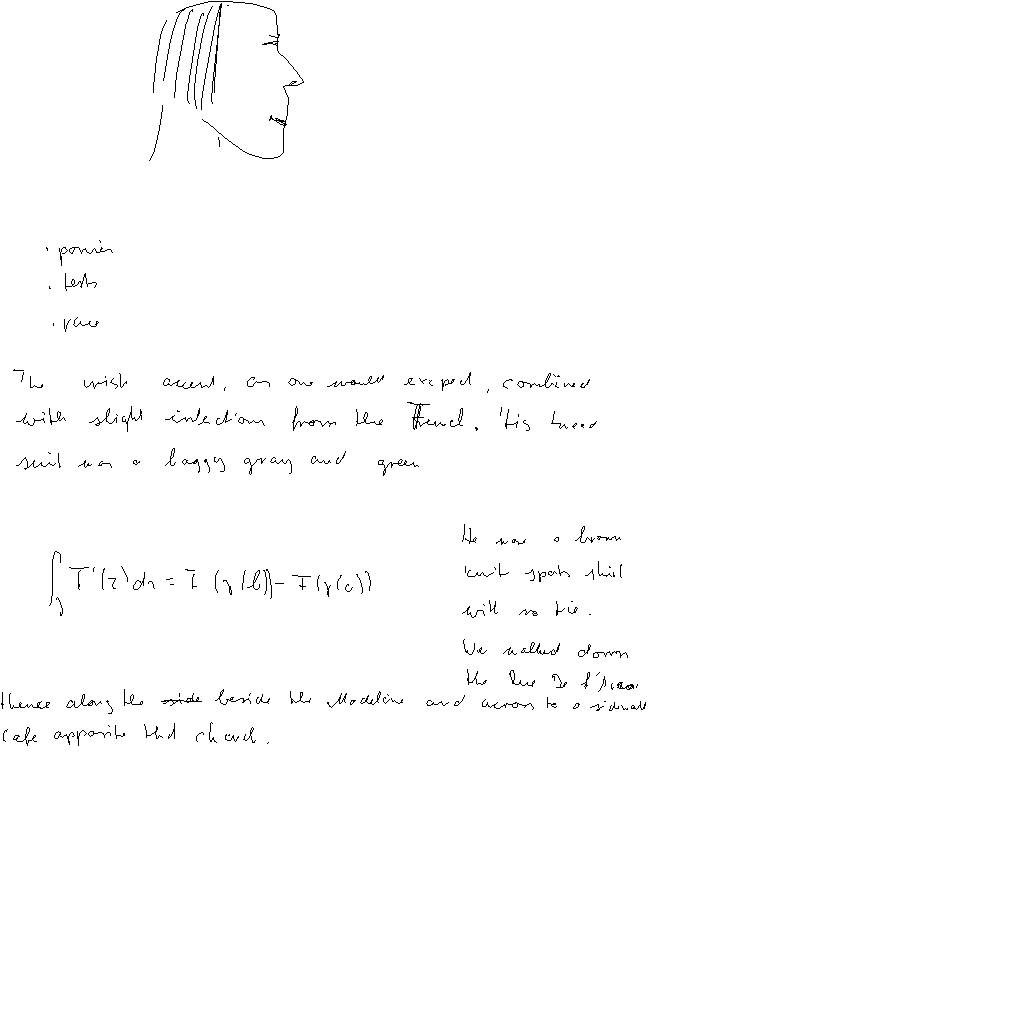 . ponies
. tests
. race
The irish accent, as one would exepect, combined
with slight infections from the French. His tweed
suit was a baggy gray and green
∫γ F'(z) dz = F(γ(b)) - F(γ(a))
He wore a brown
knit sports shirt
with no tie.
We walked down
the Rue De
thence along the beside the Madeline and across to a sidewalk
cafe opposite that church.